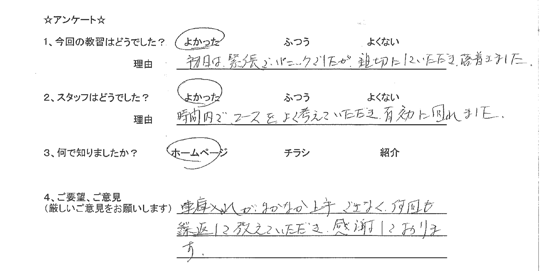 ☆アンケート☆
1、今回の教習はどうでした? よかった ふつう よくない
理由 初日は、緊張でパニックでしたが、親切にしていただき、落着きました。
2、スタッフはどうでした? よかった ふつう よくない
理由 時間内で、コースをよく考えていただき、有効に回れました。
3、何で知りましたか? ホームページ チラシ 紹介
4、ご要望、ご意見
(厳しいご意見をお願いします) 車庫入れがなかなか上手く出なく、何回も
繰返して教えていただき、感謝しております。